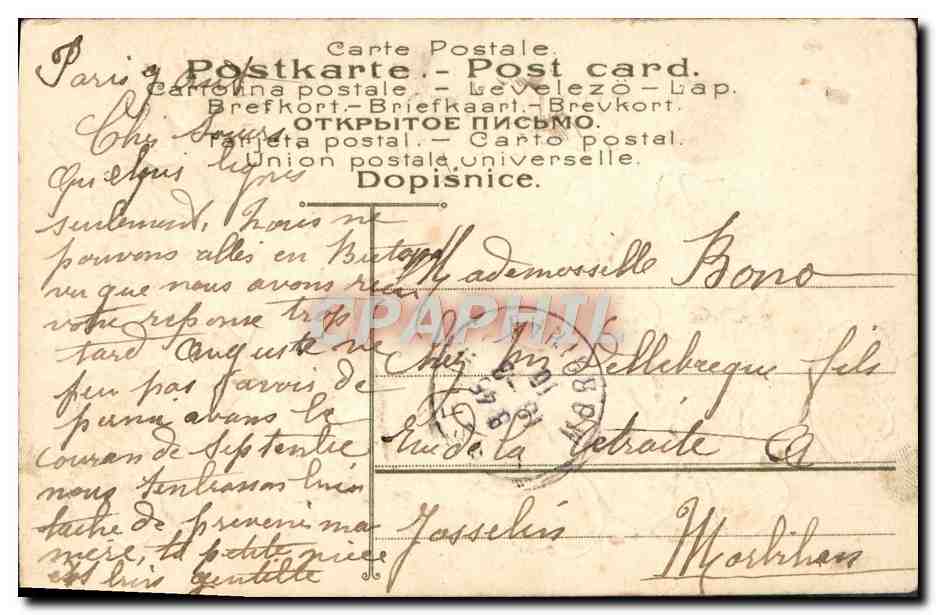 Carte Postale.
Postkarte. - Post card.
Cartolina postale. - Levelező - Lap.
Brefkort. - Briefkaart. - Brevkort.
ОТКРЫТОЕ ПИСЬМО.
Tarjeta postal. - Carto postal.
Union postale universelle.
Dopisnice.
Paris 9 aout
Soeurs,
quelques lignes
seulement, nous ne
pouvons alles en Bretagne
vu que nous avons recu
votre reponse trop
tard Auguste ne
peu pas
avans le
couran de septenbre
nous tenbrasson bien
tache de preveni ma
mere, ta petite niece
est bien gentille
Mademosselle Bono
Chez Mr Pellebreque fils
Rue de la retraite
Josselin
Morbihan
CPAPHIL
8 45
10 - 8